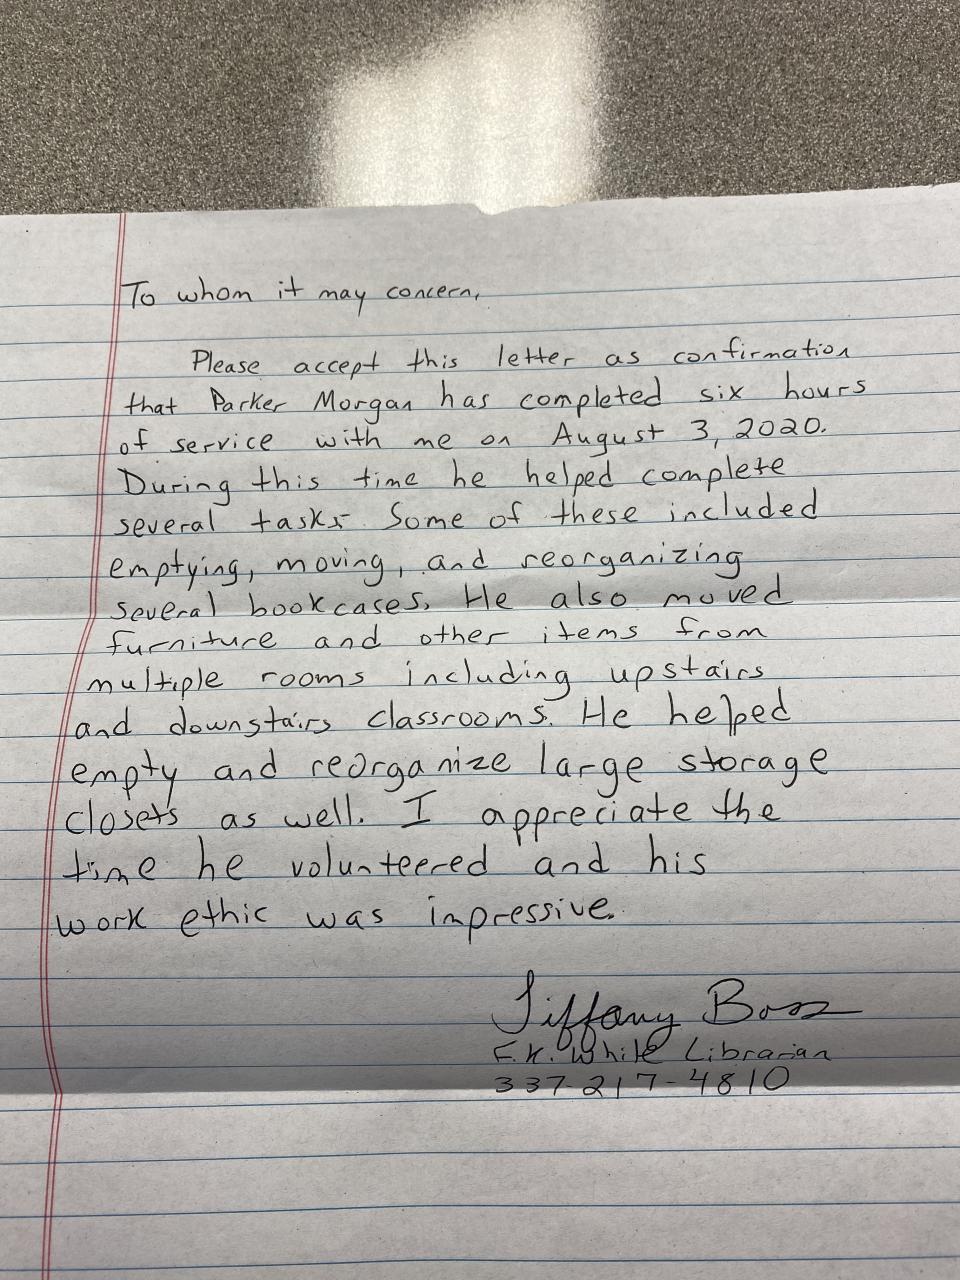 To whom it may concern,
Please accept this letter as confirmation
that Parker Morgan has completed six hours
of service with me on August 3, 2020.
During this time he helped complete
several tasks. Some of these included
emptying, moving, and reorganizing
several bookcases. He also moved
furniture and other items from
multiple rooms including upstairs
and downstairs classrooms. He helped
empty and reorganize large storage
closets as well. I appreciate the
time he volunteered and his
work ethic was impressive.
Tiffany
F.K. White Librarian
337-217-4810